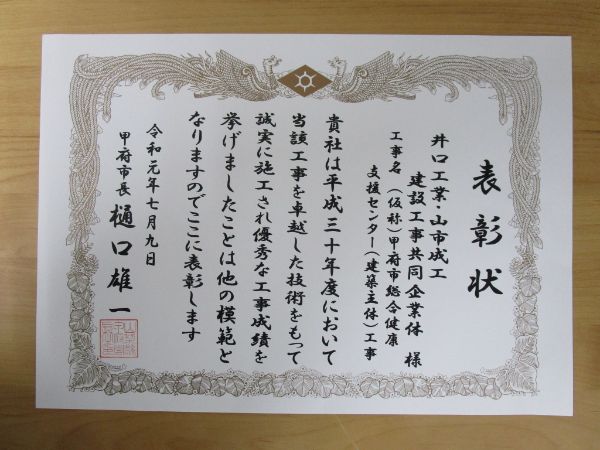 表彰状
井口工業・山市成工
建設工事共同企業体 様
工事名 (仮称)甲府市総合健康
支援センター(建築主体)工事
貴社は平成三十年度において
当該工事を卓越した技術をもって
誠実に施工され優秀な工事成績を
挙げましたことは他の模範と
なりますのでここに表彰します
令和元年七月九日
甲府市長 樋口雄一